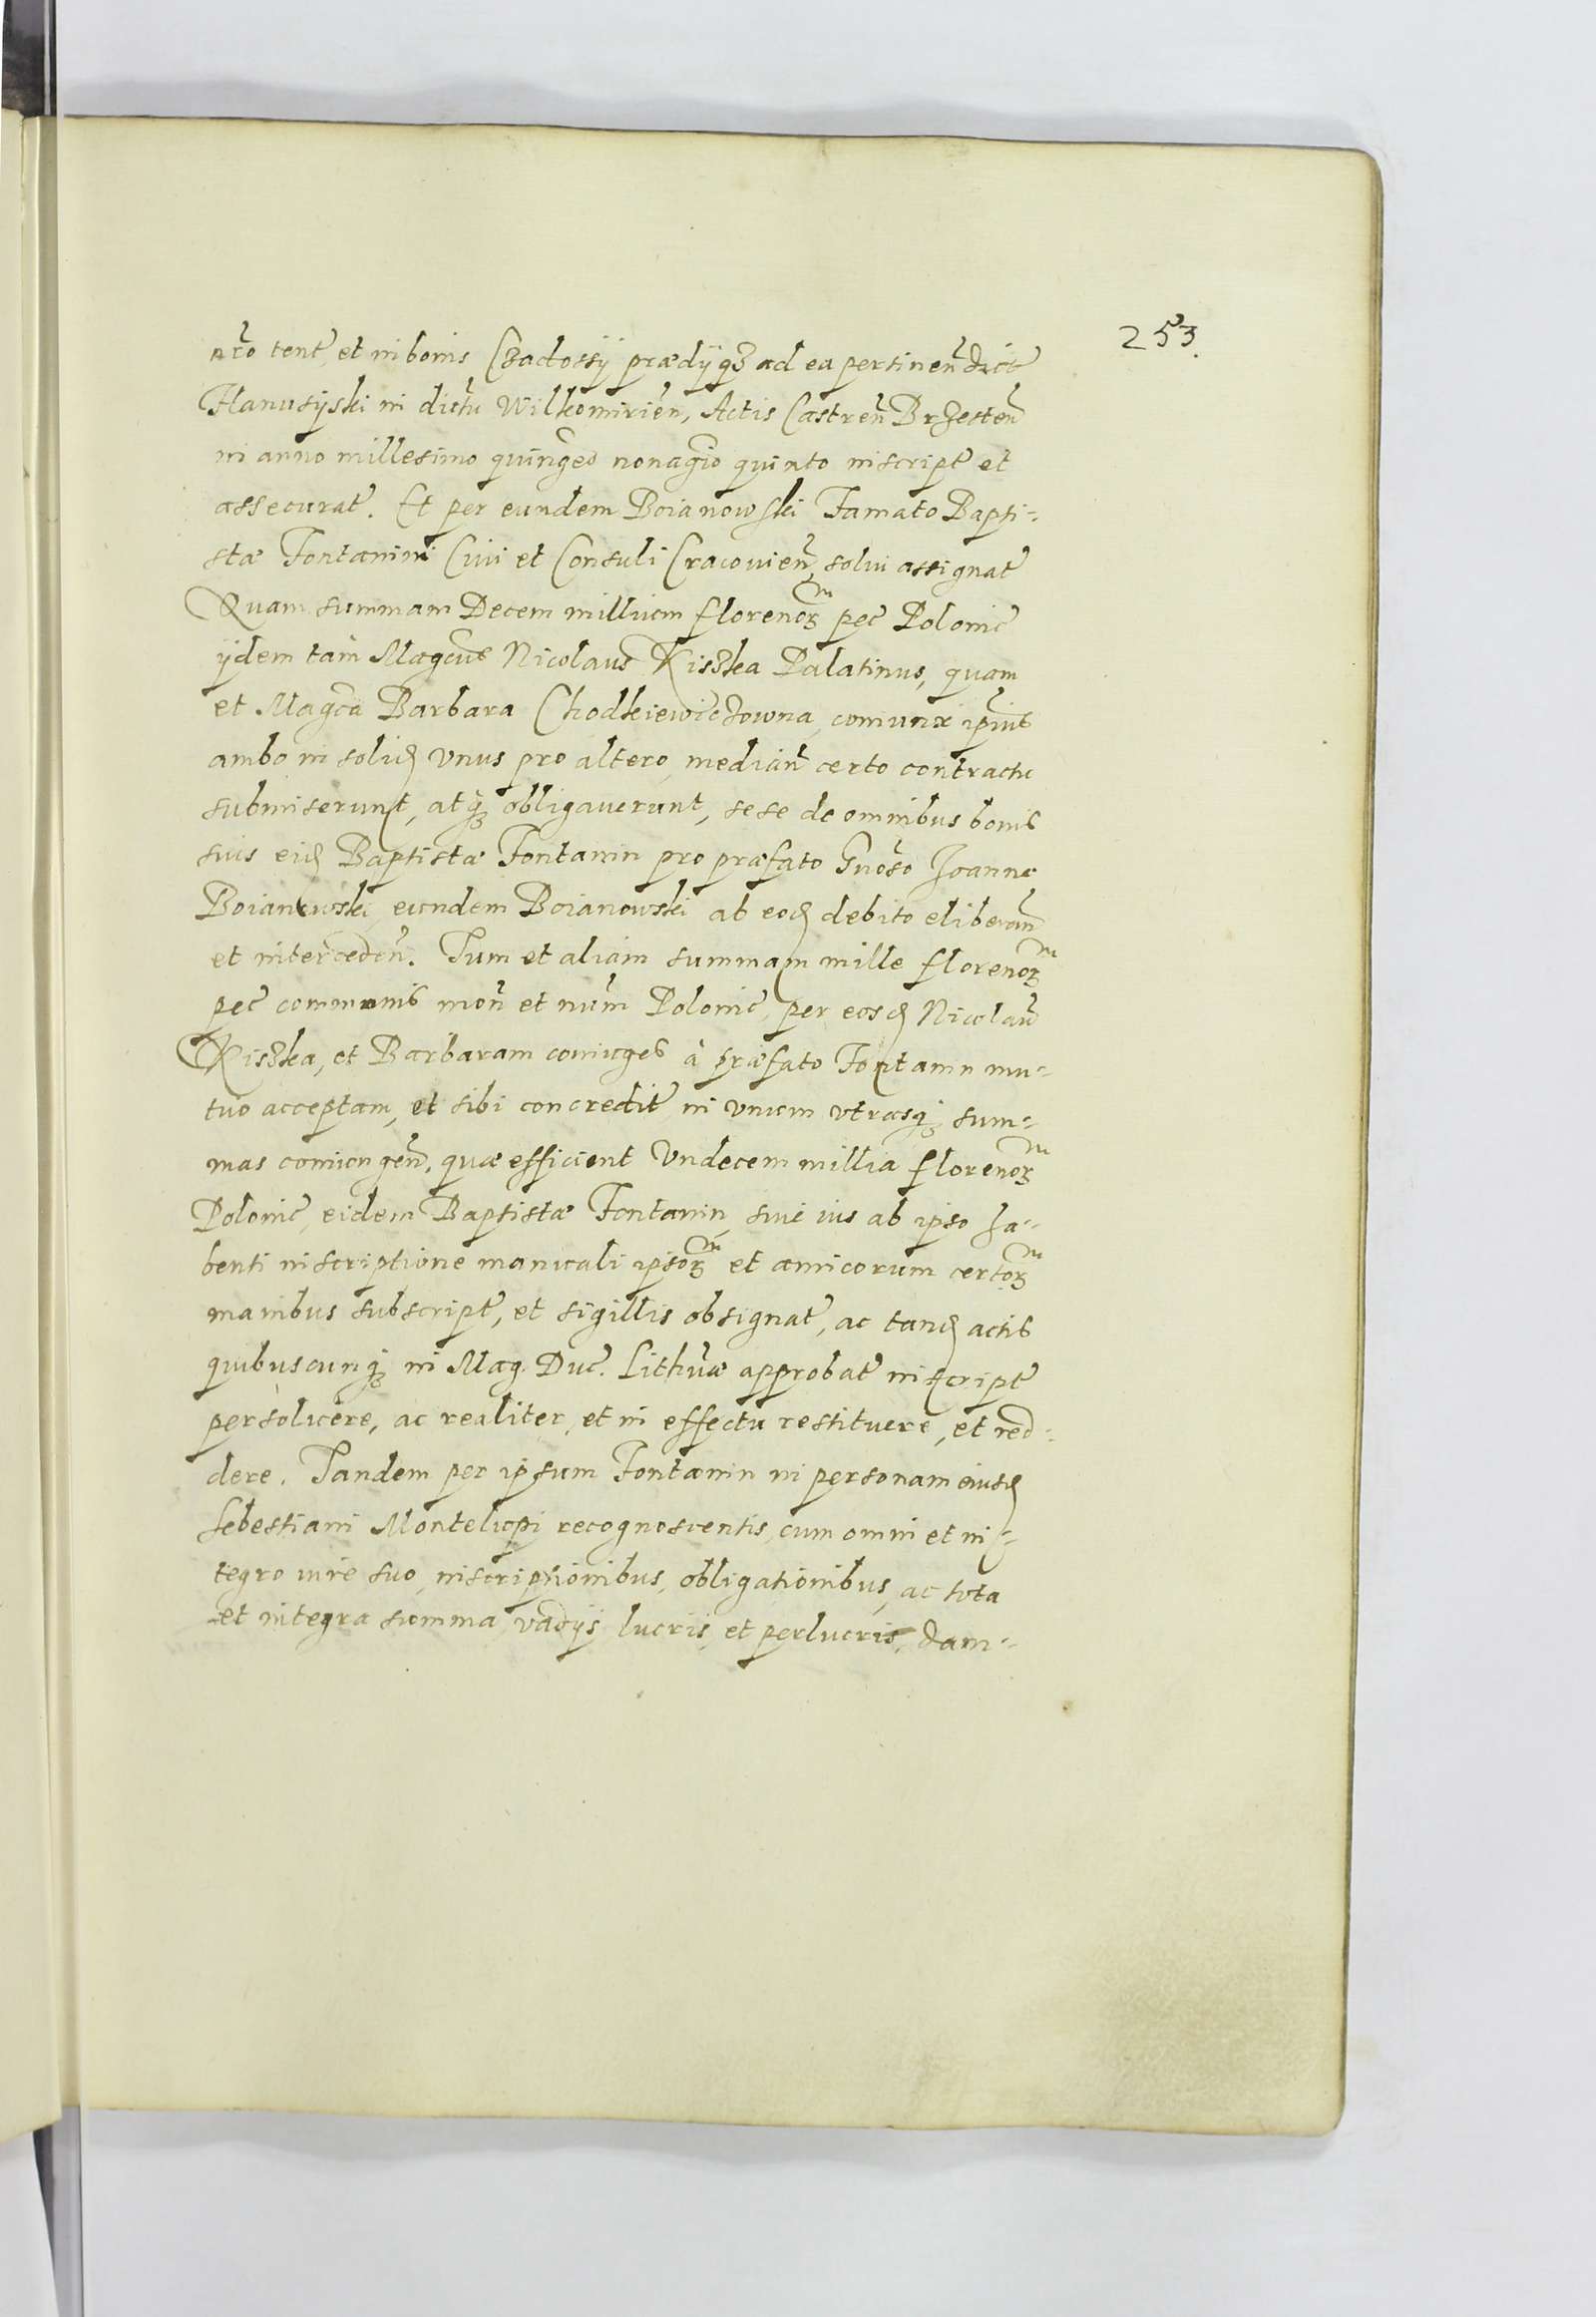 253.
nr̃o tent̃ et in bonis Czadossÿ prædÿqȝ ad ea pertinen̄ dict̃
Hanusÿski in dictu Wilkomirien̄, Actis Castren̄ Brzesten̄
in anno millesimo quingeo nonagio quinto inscript̃ et
assecurat̃. Et per eundem Boianowski Famato Bapti=
stæ Fontanini Civi et Consuli Cracovien̄, solvi assignat̃
Quam summam Decem millium florenoꝝ pec̃ Polonic̃
ÿdem tam Magcus Nicolaus Kisska Palatinus, quam
et Magca Barbara Chodkiewiczowna, coniunx ip̃ius
ambo in solid̃ unus pro altero, median̄ certo contractu
submiserunt, atqꝫ obligaverunt, sese de omnibus bonis
suis eid̃ Baptistæ Fontanin pro præfato Gnoso Joanne
Boianowski, eundem Boianowski ab eod̃ debito eliberan̄
et interceden̄. Tum et aliam summam mille florenoꝝ
pec̃ communis mon̄ et num̃ Polonic̃, per eosd̃ Nicolaũ
Kisska, et Barbaram coniuges à præfato Fontanin mu=
tuo acceptam, et sibi concredit̃ in unum utrasqꝫ sum=
mas coniungen̄, quæ efficient Undecem millia florenoꝝ
Polonic̃, eidem Baptistæ Fontanin, sive ius ab ipso ha=
benti inscriptione manuali ipsoꝝ et amicorum certoꝝ
manibus subscript̃, et sigillis obsignat̃, ac tand̃ actis
quibuscunqꝫ in Mag. Duc̃. Lithuæ approbat̃ inscript̃
persoluere, ac realiter, et in effectu restituere, et red=
dere. Tandem per ipsum Fontanin in personam eiusd̃
Sebestiani Montelupi recognoscentis, cum omni et in=
tegro iure suo, inscriptionibus, obligationibus, ac tota
et integra summa, vadÿs lucris, et perlucris, dam=